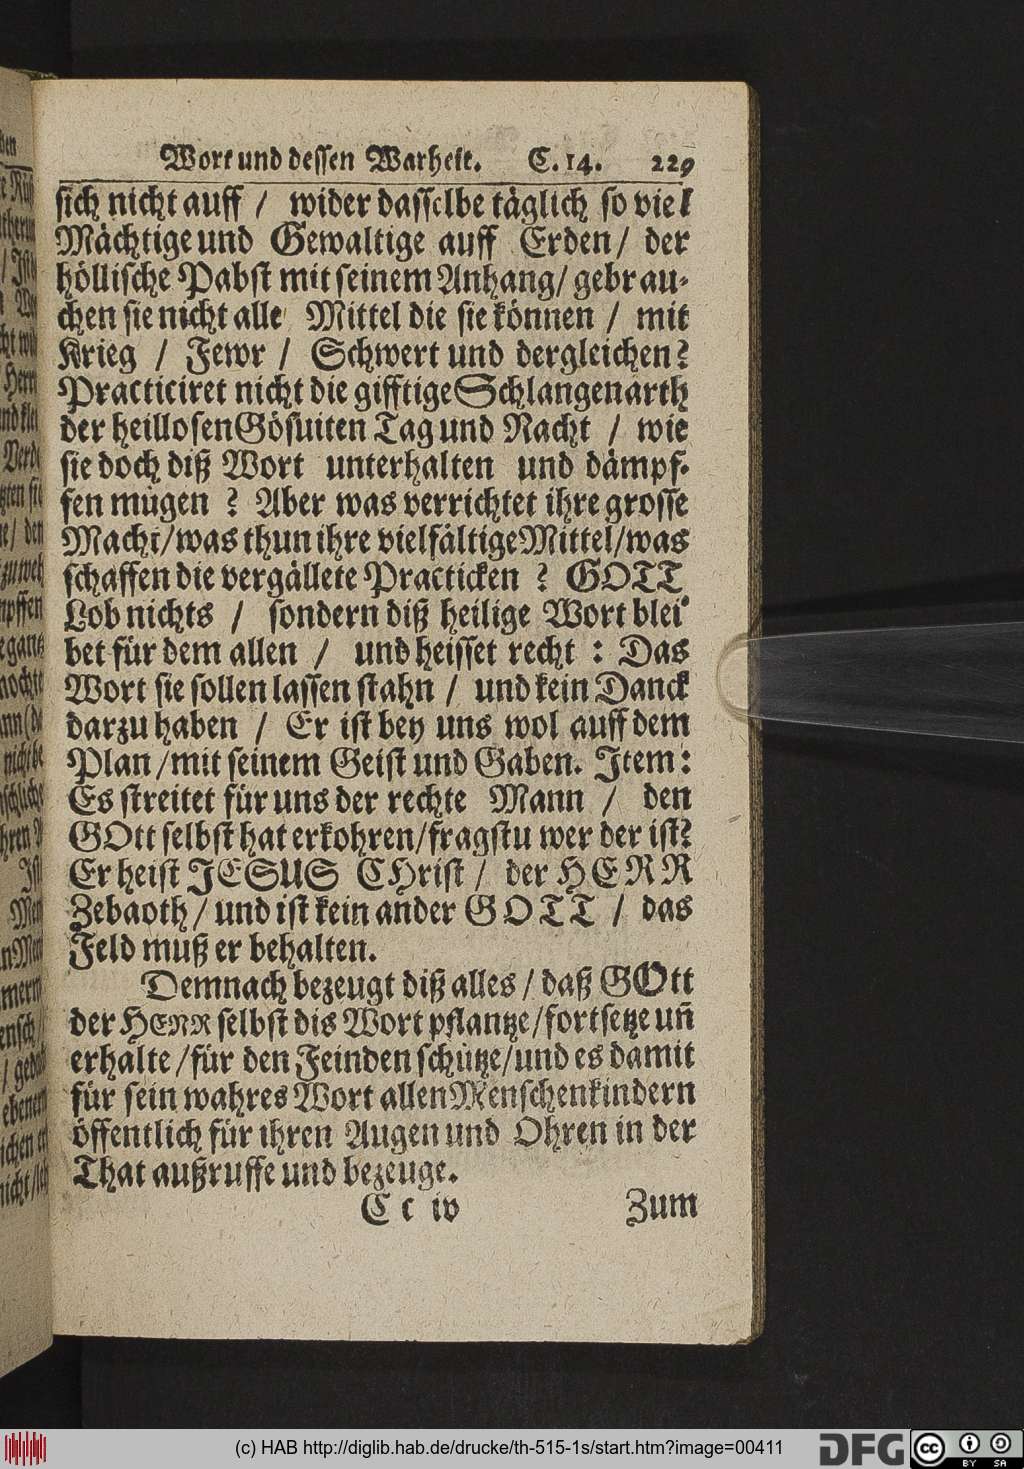 Wort und dessen Warheit. C. 14. 229
sich nicht auff / wider dasselbe täglich so viel
Mächtige und Gewaltige auff Erden / der
höllische Pabst mit seinem Anhang / gebrau-
chen sie nicht alle Mittel die sie können / mit
Krieg / Fewr / Schwert und dergleichen?
Practiciret nicht die gifftige Schlangenarth
der heillosen Gösuiten Tag und Nacht / wie
sie doch diß Wort unterhalten und dämpf-
fen mügen ? Aber was verrichtet ihre grosse
Macht/was thun ihre vielfältige Mittel/was
schaffen die vergällete Practicken ? GOTT
Lob nichts / sondern diß heilige Wort blei-
bet für dem allen / und heisset recht : Das
Wort sie sollen lassen stahn / und kein Danck
darzu haben / Er ist bey uns wol auff dem
Plan /mit seinem Geist und Gaben. Item:
Es streitet für uns der rechte Mann / den
GOtt selbst hat erkohren/fragstu wer der ist?
Er heist JESUS CHrist / der HERR
Zebaoth / und ist kein ander GOTT / das
Feld muß er behalten.
Demnach bezeugt diß alles / daß GOtt
der HERR selbst dis Wort pflantze/fortsetze uñ
erhalte /für den Feinden schütze/und es damit
für sein wahres Wort allen Menschenkindern
öffentlich für ihren Augen und Ohren in der
That außruffe und bezeuge.
C c iv Zum
(c) HAB http://diglib.hab.de/drucke/th-515-1s/start.htm?image=00411
DFG
cc BY SA